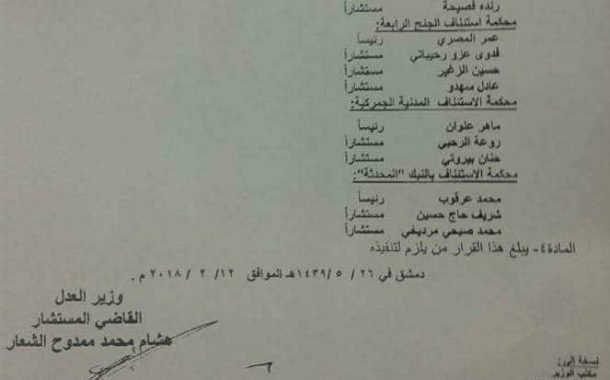 رنده فصيحة مستشاراً
محكمة استئناف الجنح الرابعة:
عمر المصري رئيساً
فدوى عزو رحيباتي مستشاراً
حسين الزغير مستشاراً
عادل سهدو مستشاراً
محكمة الاستئناف المدنية الجمركية:
ماهر علوان رئيساً
روعة الرحبي مستشاراً
حنان بيروتي مستشاراً
محكمة الاستئناف بالنبك "المحدثة":
محمد عرقوب رئيساً
شريف حاج حسين مستشاراً
محمد صبحي مرديغي مستشاراً
المادة ٤- يبلغ هذا القرار من يلزم لتنفيذه
دمشق في ٢٦ / ٥ /١٤٣٩هـ الموافق ١٢/ ٢ / ٢٠١٨ م.
وزير العدل
القاضي المستشار
هشام محمد ممدوح الشعار
نسخة إلى:
مكتب الوزير